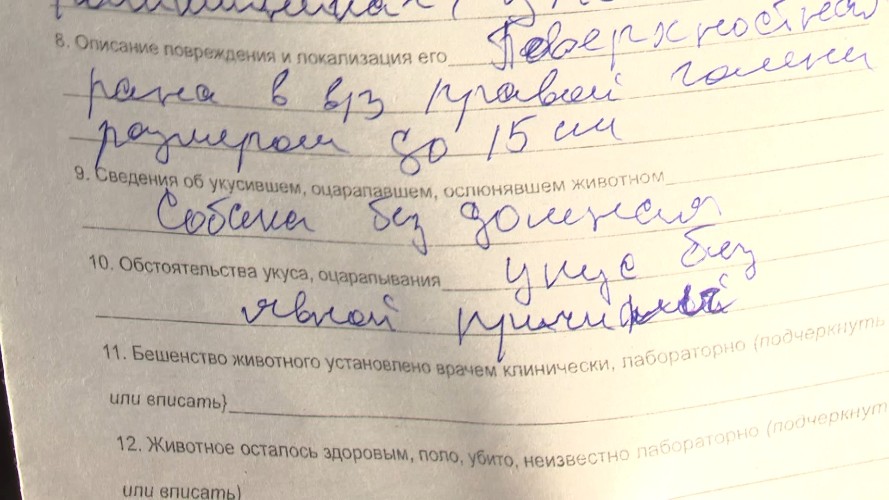 8. Описание повреждения и локализация его Поверхностная
рана в в/з правой голени
размером до 15 см
9. Сведения об укусившем, оцарапавшем, ослюнявшем животном
Собака без
10. Обстоятельства укуса, оцарапывания укус без
явной причины
11. Бешенство животного установлено врачем клинически, лабораторно (подчеркнуть
или вписать}
12. Животное осталось здоровым, поло, убито, неизвестно лабораторно (подчеркнут
или вписать)